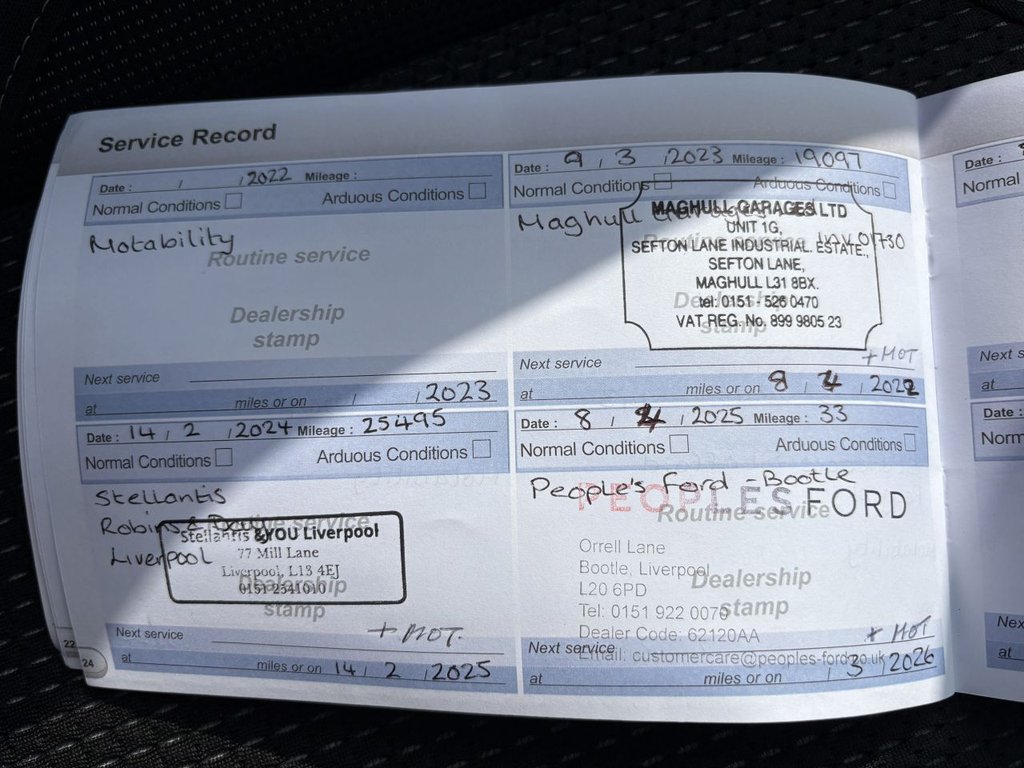 Service Record
Date : / / 2022 Mileage :
Normal Conditions Arduous Conditions
Motability
Routine service
Dealership
stamp
Next service
at miles or on / / 2023
Date : 9 / 3 / 2023 Mileage : 19097
Normal Conditions Arduous Conditions
Maghull
MAGHULL GARAGES LTD
UNIT 1G,
SEFTON LANE INDUSTRIAL ESTATE,
SEFTON LANE,
MAGHULL L31 8BX.
tel: 0151 - 526 0470
VAT REG. No. 899 9805 23
INV 01730
Routine service
Dealership
stamp
Next service + MOT
at miles or on 8 / / 2022
Date : 14 / 2 / 2024 Mileage : 25495
Normal Conditions Arduous Conditions
Stellantis
Robins & Day
Liverpool
Routine service
Stellantis &YOU Liverpool
77 Mill Lane
Liverpool, L13 4EJ
0151 2341010
Dealership
stamp
Next service + MOT
at miles or on 14 / 2 / 2025
Date : 8 / / 2025 Mileage : 33
Normal Conditions Arduous Conditions
People's Ford - Bootle
PEOPLES FORD
Routine service
Orrell Lane
Bootle, Liverpool
L20 6PD
Tel: 0151 922 0070
Dealer Code: 62120AA
Email: customercare@peoples-ford.co.uk
Dealership
stamp
Next service + MOT
at miles or on / 3 / 2026
22
24
Date :
Normal
Next s
at
Date :
Norm
Nex
at